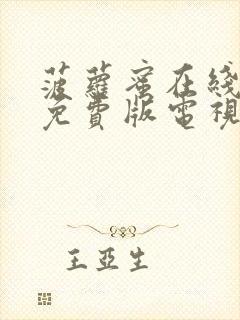 菠蘿蜜在綫
免費版電視
王亞生